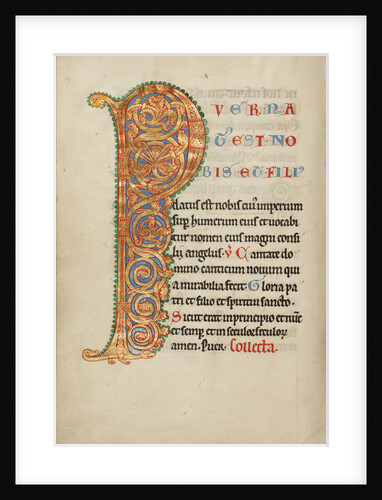 P VERNA
TEST·NO
BIS·ET·FILI
datus est nobis cui' imperium
sup humerum eius et uocabi
tur nomen eius magni consi
lij angelus. V Cantate do
mino canticum nouum qui
a mirabilia fecit. Gloria pa
tri et filio et spiritui sancto.
Sicut erat in principio et nunc
et semp et in secula seculor
amen. Puer. Collecta.